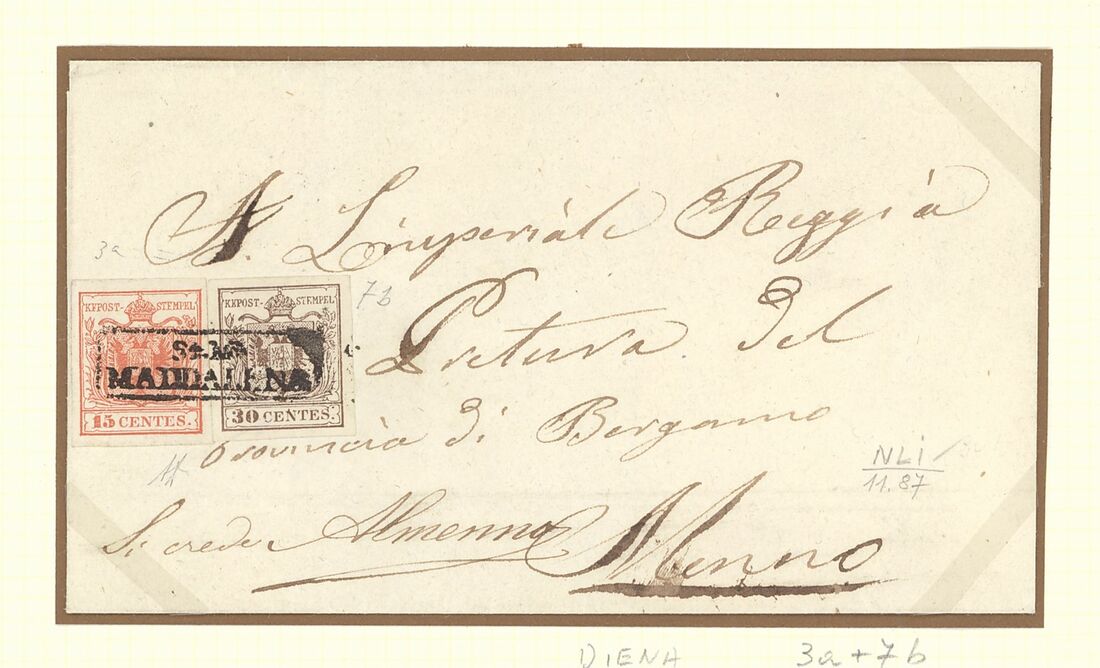 A. L'imperiale Reggia
3a
7b
KKPOST-STEMPEL
15 CENTES.
KKPOST-STEMPEL
30 CENTES.
Sta. Ma.
MADDALENA
Pretura del
Provincia di Bergamo
NLI
11.87
Si crede Almenno
Menno
DIENA 3a+7b